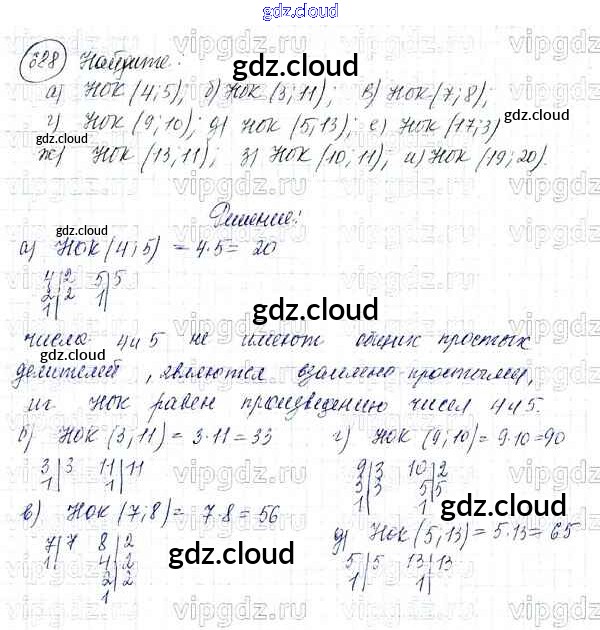 gdz.cloud
628 Найдите:
а) НОК (4; 5); б) НОК (3; 11); в) НОК (7; 8);
г) НОК (9; 10); д) НОК (5, 13); е) НОК (17; 3)
ж) НОК (13, 11); з) НОК (10; 11); и) НОК (19; 20).
Решение:
а) НОК (4; 5) = 4·5 = 20
4|2 5|5
2|2 1|
1|
числа 4 и 5 не имеют общих простых
делителей, являются взаимно-простыми,
их НОК равен произведению чисел 4 и 5.
б) НОК (3, 11) = 3·11 = 33
3|3 11|11
1| 1|
в) НОК (7; 8) = 7·8 = 56
7|7 8|2
1| 4|2
2|2
1|
г) НОК (9; 10) = 9·10 = 90
9|3 10|2
3|3 5|5
1| 1|
д) НОК (5, 13) = 5·13 = 65
5|5 13|13
1| 1|
gdz.cloud
gdz.cloud
gdz.cloud
gdz.cloud
gdz.cloud
gdz.cloud
gdz.cloud
vipgdz.ru